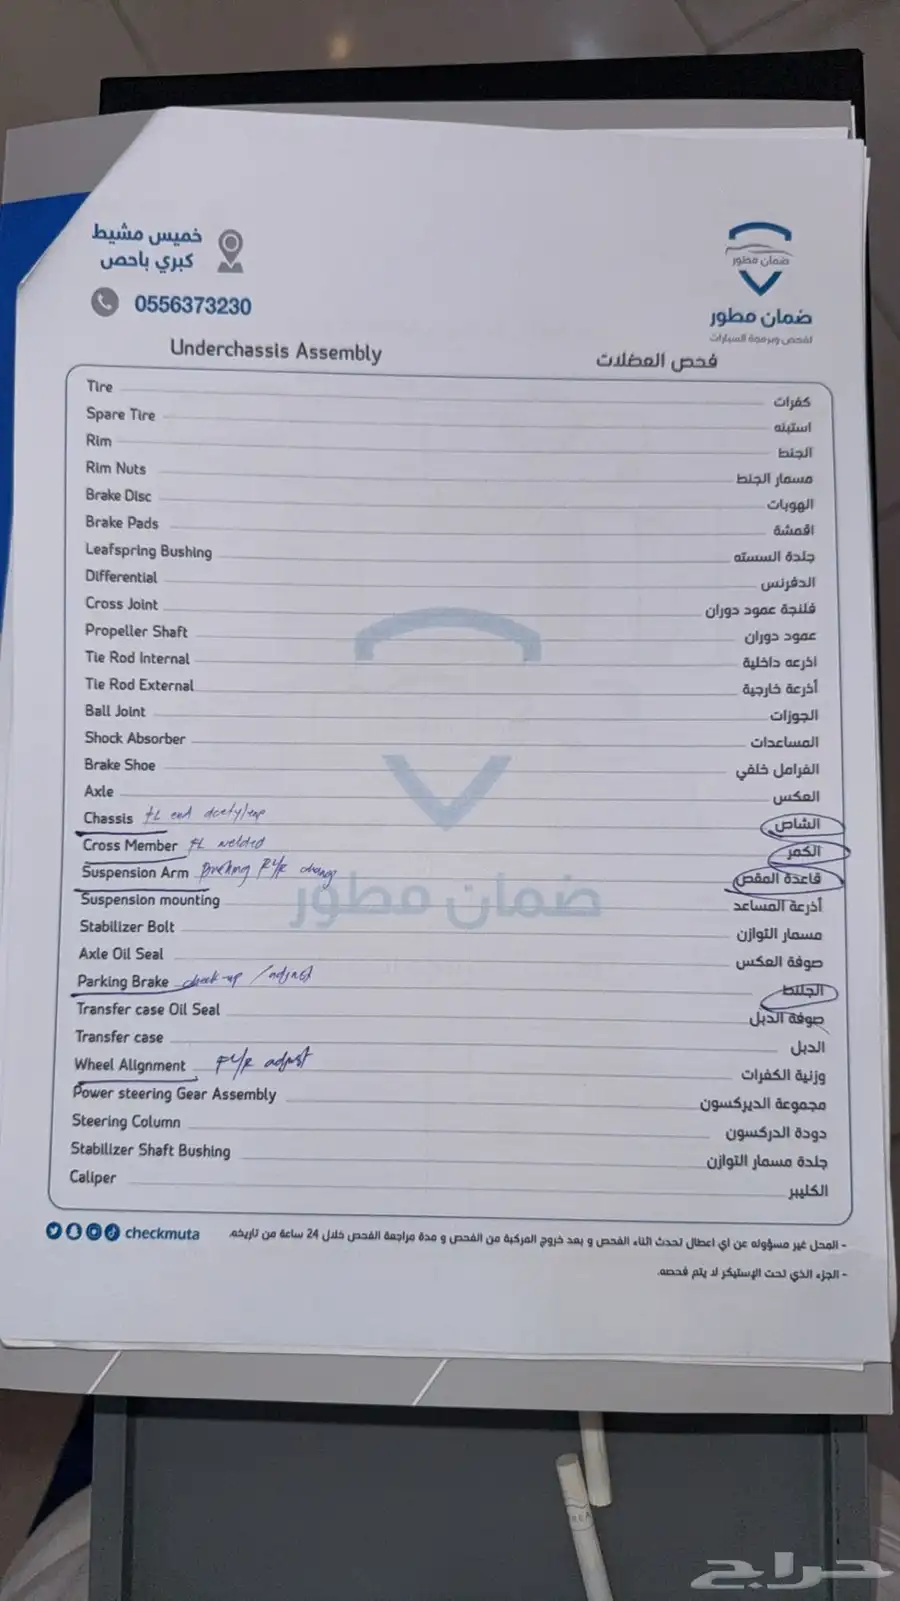 خميس مشيط
كبري باحص
0556373230
ضمان مطور
ضمان مطور
لفحص وبرمجة السيارات
Underchassis Assembly فحص العضلات
Tire كفرات
Spare Tire استبنه
Rim الجنط
Rim Nuts مسمار الجنط
Brake Disc الهوبات
Brake Pads اقمشة
Leafspring Bushing جلدة السسته
Differential الدفرنس
Cross Joint فلنجة عمود دوران
Propeller Shaft عمود دوران
Tie Rod Internal اذرعه داخلية
Tie Rod External أذرعة خارجية
Ball Joint الجوزات
Shock Absorber المساعدات
Brake Shoe الفرامل خلفي
Axle العكس
Chassis FL end الشاص
Cross Member FL welded الكمر
Suspension Arm Bushing F/R change قاعدة المقص
Suspension mounting أذرعة المساعد
Stabilizer Bolt مسمار التوازن
Axle Oil Seal صوفة العكس
Parking Brake check-up / adjust الجلنط
Transfer case Oil Seal صوفة الدبل
Transfer case الدبل
Wheel Alignment F/R adjust وزنية الكفرات
Power steering Gear Assembly مجموعة الديركسون
Steering Column دودة الدركسون
Stabilizer Shaft Bushing جلدة مسمار التوازن
Caliper الكليبر
ضمان مطور
checkmuta
- المحل غير مسؤوله عن اي اعطال تحدث اثناء الفحص و بعد خروج المركبة من الفحص و مدة مراجعة الفحص خلال 24 ساعة من تاريخه.
- الجزء الذي تحت الإستيكر لا يتم فحصه.
حراج